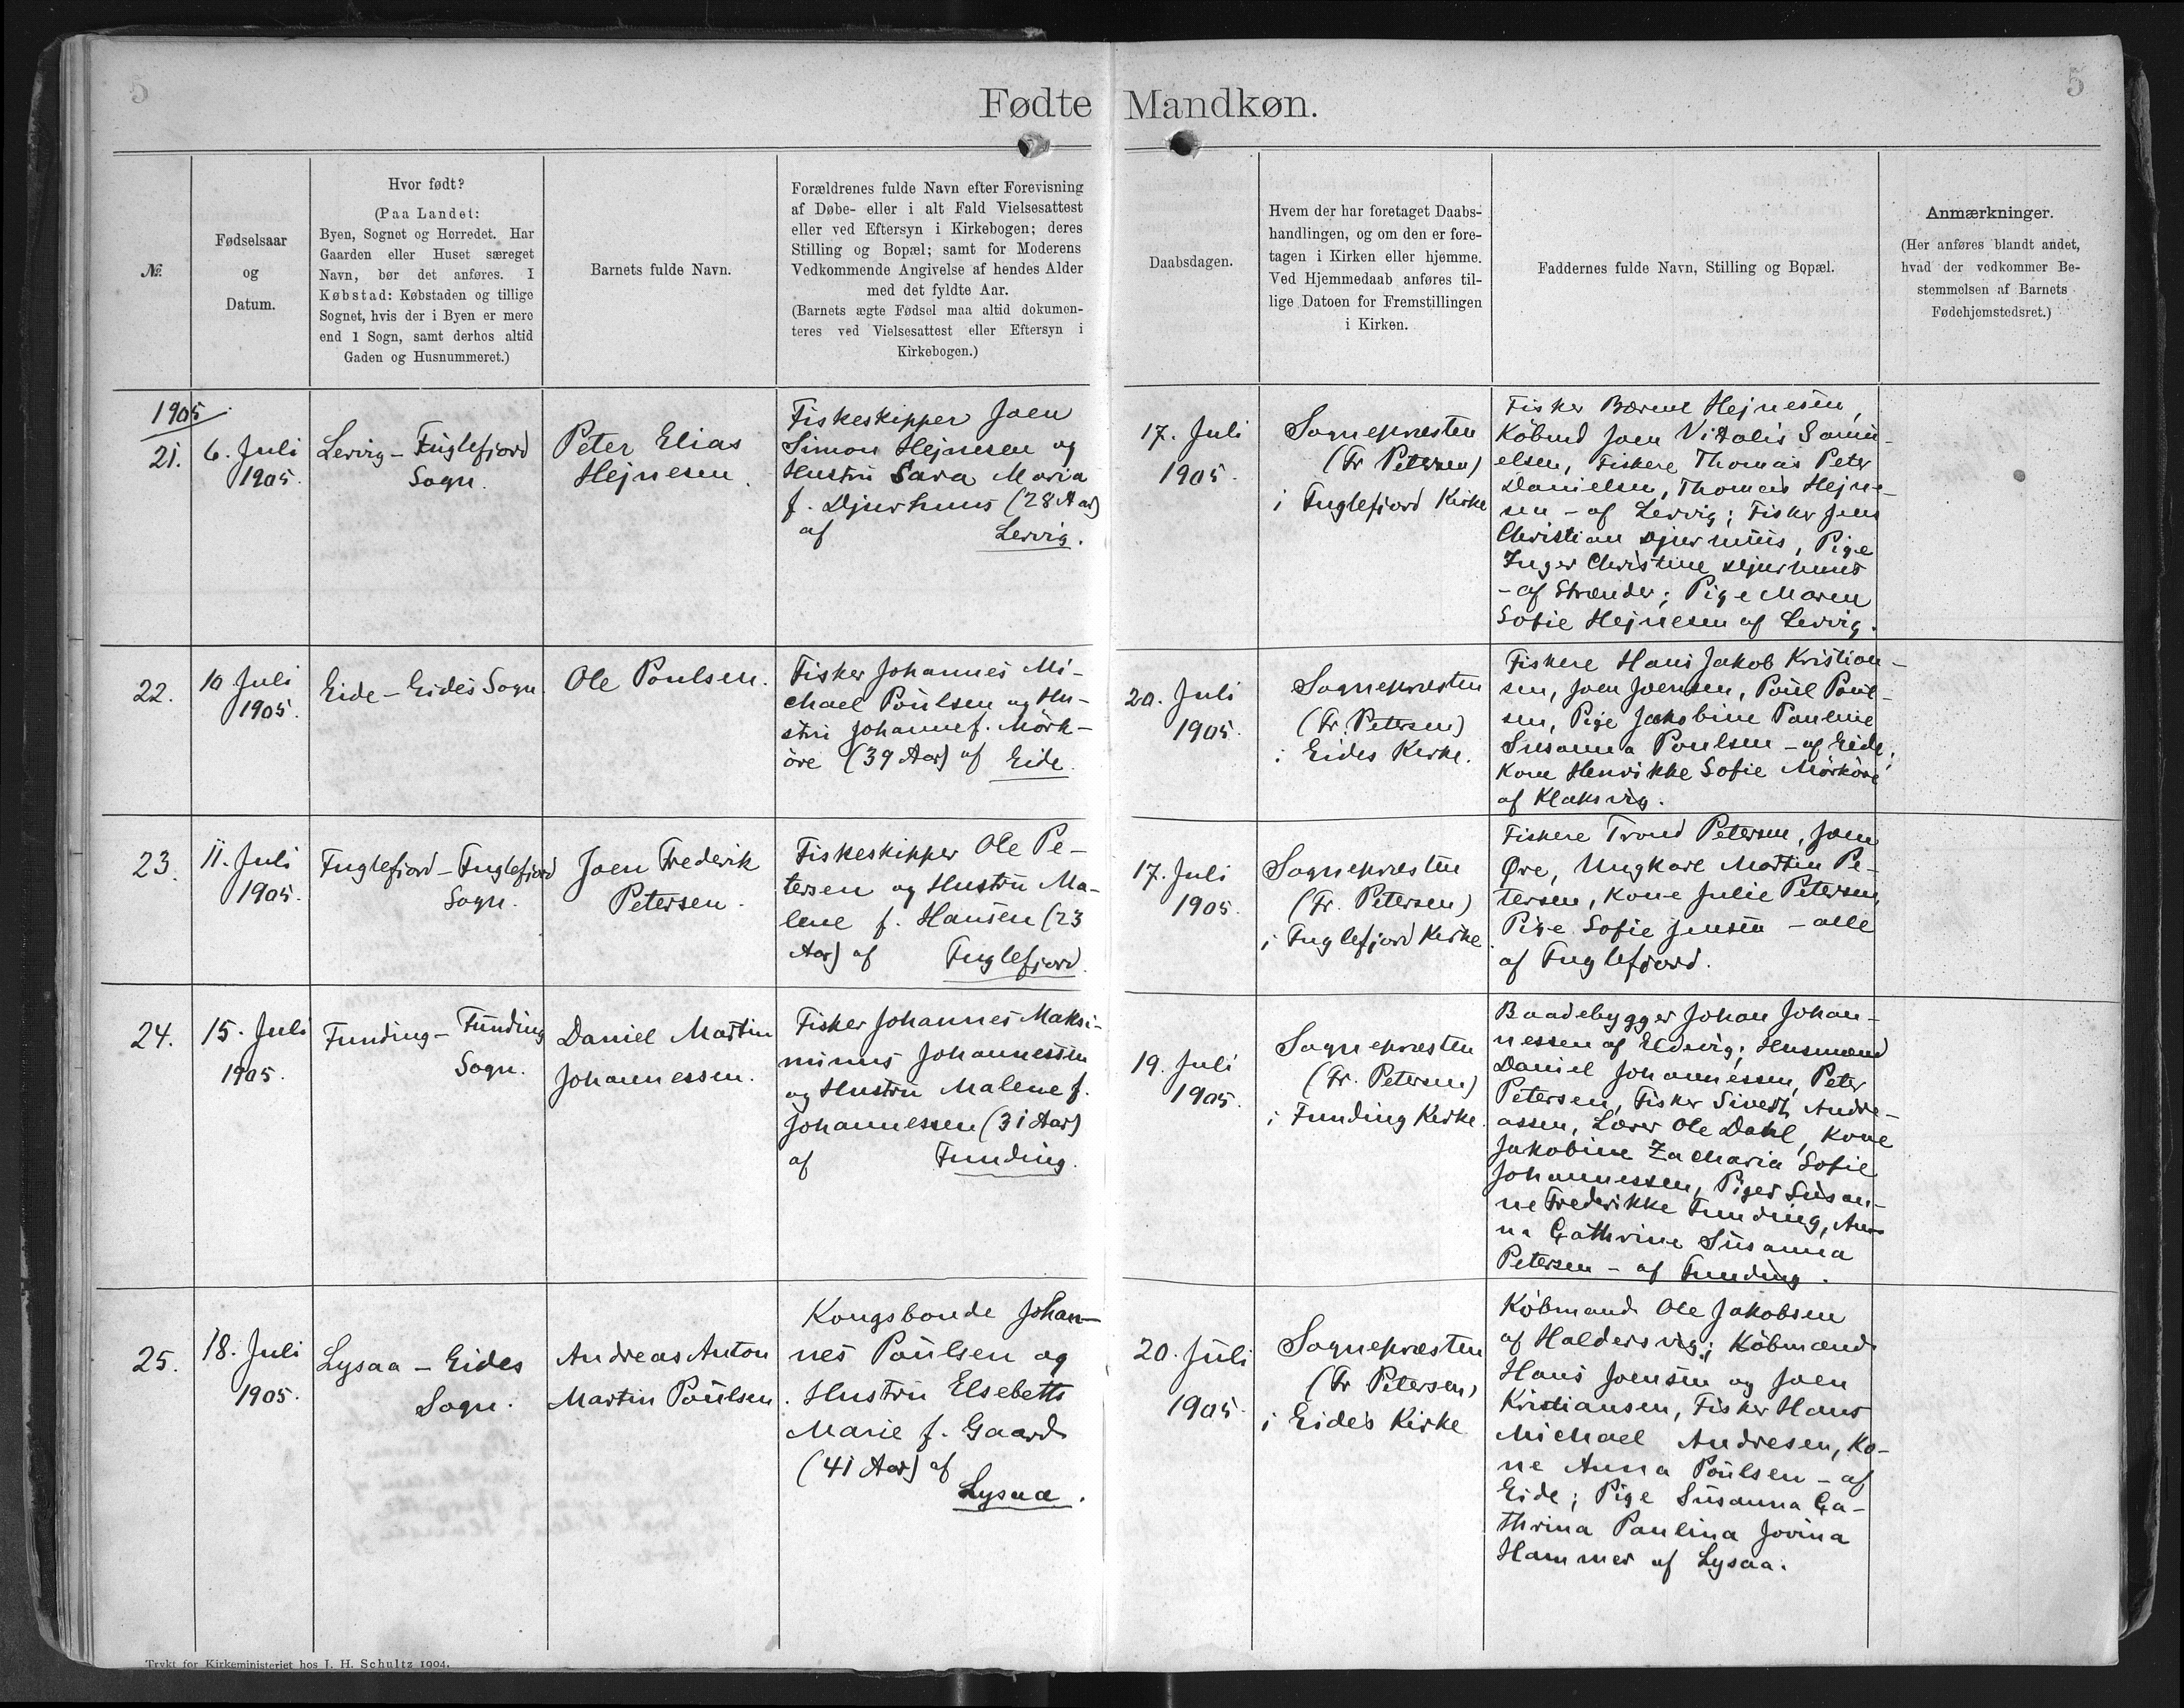 5
5
Fødte Mandkøn.
№
Fødselsaar
og
Datum.
Hvor født?
(Paa Landet:
Byen, Sognet og Herredet. Har
Gaarden eller Huset særeget
Navn, bør det anføres. I
Købstad: Købstaden og tillige
Sognet, hvis der i Byen er mere
end 1 Sogn, samt derhos altid
Gaden og Husnummeret.)
Barnets fulde Navn.
Forældrenes fulde Navn efter Forevisning
af Døbe- eller i alt Fald Vielsesattest
eller ved Eftersyn i Kirkebogen; deres
Stilling og Bopæl; samt for Moderens
Vedkommende Angivelse af hendes Alder
med det fyldte Aar.
(Barnets ægte Fødsel maa altid dokumen-
teres ved Vielsesattest eller Eftersyn i
Kirkebogen.)
Daabsdagen.
Hvem der har foretaget Daabs-
handlingen, og om den er fore-
tagen i Kirken eller hjemme.
Ved Hjemmedaab anføres til-
lige Datoen for Fremstillingen
i Kirken.
Faddernes fulde Navn, Stilling og Bopæl.
Anmærkninger.
(Her anføres blandt andet,
hvad der vedkommer Be-
stemmelsen af Barnets
Fødehjemstedsret.)
1905
21.
6. Juli
1905.
Lervig – Fuglefjord
Sogn.
Peter Elias
Hejnesen.
Fiskeskipper Joen
Simon Hejnesen og
Hustru Sara Maria
f. Djurhuus (28 Aar)
af Lervig.
17. Juli
1905.
Sognepræsten
(Fr Petersen)
i Fuglefjord Kirke
Fisker Hejnesen,
Købmd Joen Vitalis Samu-
elsen, Fiskere Thomas Peter
Danielsen, Thomas Hejne-
sen – af Lervig; Fisker Jens
Christian Djurhuus, Pige
Inger Christine Djurhuus
– af Strænder; Pige Maren
Sofie Hejnesen af Lervig.
22.
10 Juli
1905.
Eide – Eides Sogn.
Ole Poulsen.
Fisker Johannes Mi-
chael Poulsen og Hu-
stru Johanne f. Mörk-
öre (39 Aar) af Eide.
20. Juli
1905.
Sognepræsten
(Fr. Petersen)
i Eides Kirke.
Fiskere Hans Jakob Kristian-
sen, Joen Joensen, Poul Poul-
sen, Pige Jakobine Pauline
Susanna Poulsen – af Eide;
Kone Henrikke Sofie Mörköre
af Klaksvig.
23.
11. Juli
1905.
Fuglefjord – Fuglefjord
Sogn.
Joen Frederik
Petersen.
Fiskeskipper Ole Pe-
tersen og Hustru Ma-
lene f. Hansen (23
Aar) af Fuglefjord.
17. Juli
1905.
Sognepræsten
(Fr. Petersen)
i Fuglefjord Kirke
Fiskere Trond Petersen, Joen
Øre, Ungkarl Martin Pe-
tersen, Kone Julie Petersen,
Pige Sofie Jensen – alle
af Fuglefjord.
24.
15. Juli
1905.
Funding – Funding
Sogn.
Daniel Martin
Johannessen.
Fisker Johannes Maksi-
minus Johannessen
og Hustru Malene f.
Johannessen (31 Aar)
af Funding.
19. Juli
1905.
Sognepræsten
(Fr. Petersen)
i Funding Kirke.
Baadebygger Johan Johan-
nessen af Eldevig; Husmænd
Daniel Johannessen, Peter
Petersen, Fisker Sivert Andre-
assen, Lærer Ole Dahl, Kone
Jakobine Zacharia Sofie
Johannessen, Piger Susan-
ne Frederikke Funding, An-
na Cathrine Susanna
Petersen – af Funding.
25.
18. Juli
1905.
Lysaa – Eides
Sogn.
Andreas Anton
Martin Poulsen.
Kongsbonde Johan-
nes Poulsen og
Hustru Elsebeth
Marie f. Gaard
(41 Aar) af
Lysaa.
20. Juli
1905.
Sognepræsten
(Fr Petersen)
i Eides Kirke
Købmand Ole Jakobsen
af Haldersvig; Købmænd
Hans Joensen og Joen
Kristiansen, Fisker Hans
Michael Andresen, Ko-
ne Anna Poulsen – af
Eide; Pige Susanna Ca-
thrina Paulina Jovina
Hammer af Lysaa.
Trykt for Kirkeministeriet hos J. H. Schultz 1904.